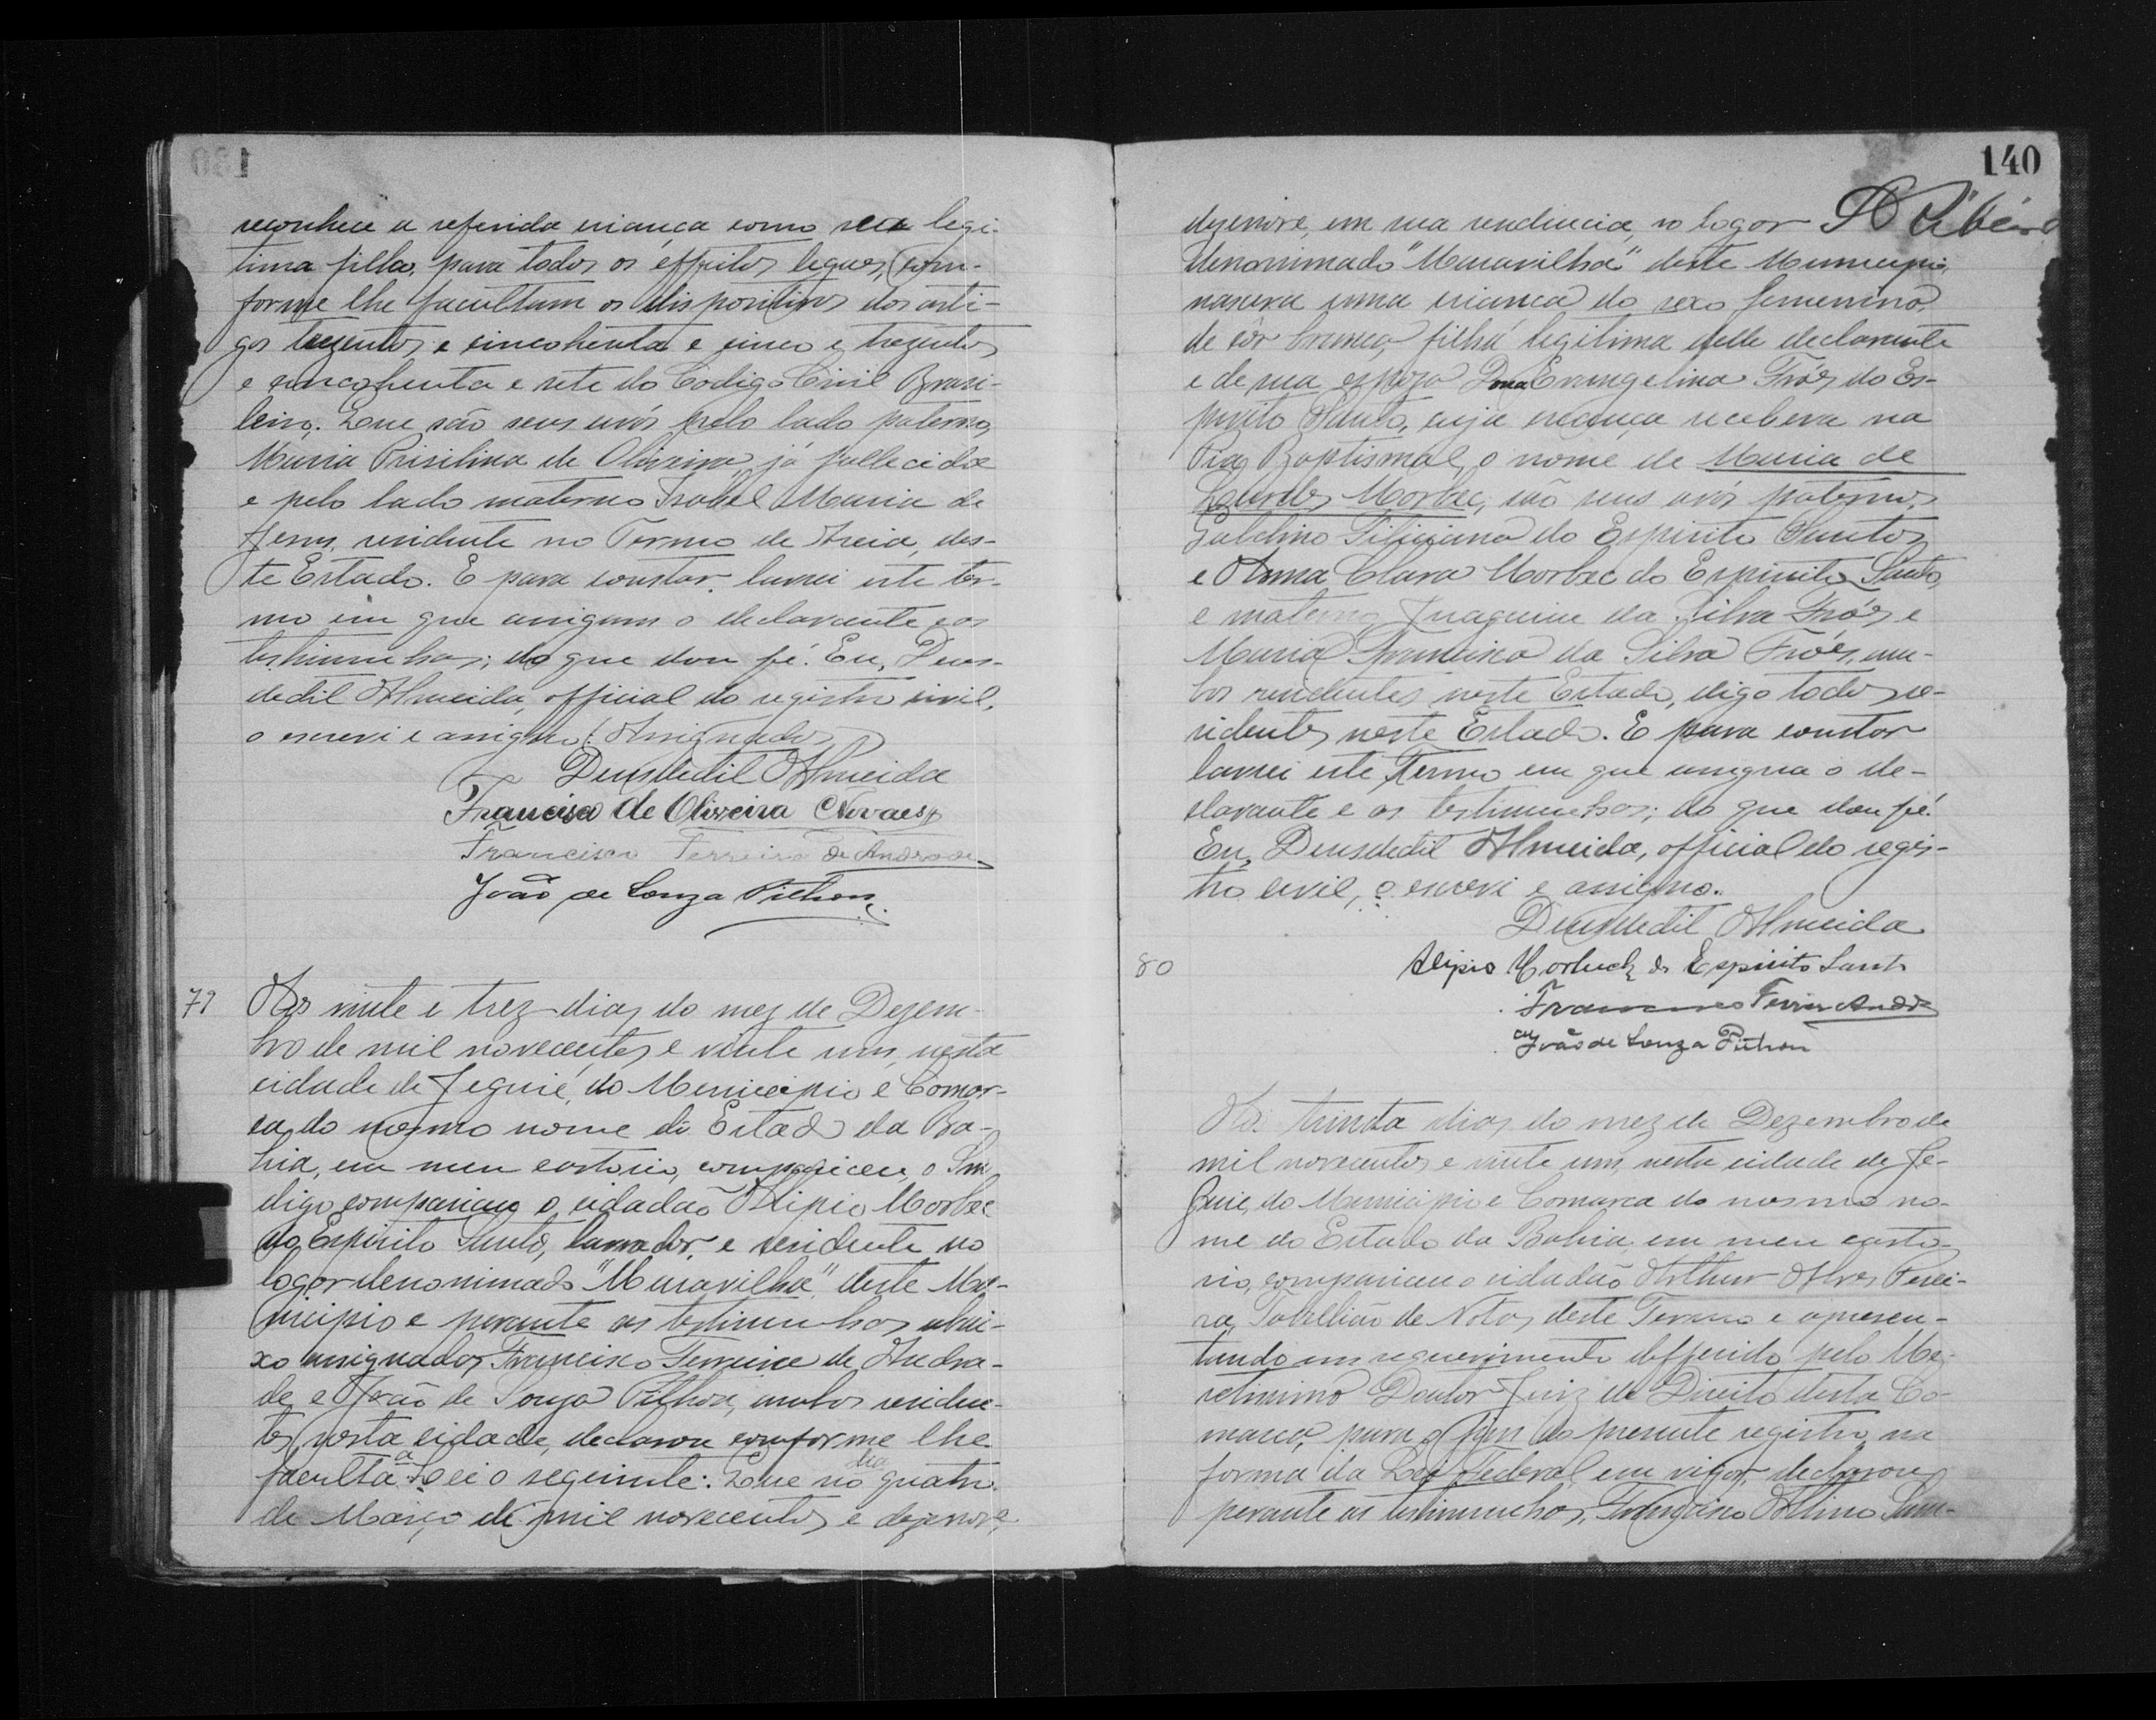 reconhece a referida criança como sua legi-
tima filha, para todos os effeitos legaes, com-
forme lhe facultam os dispositivos dos arti-
gos trezentos e cincohenta e cinco e trezentos
e cincohenta e sete do Codigo Civil Brasi-
leiro. Que são seus avós pelo lado paterno,
Maria Prisilina de Oliveira, já fallecida
e pelo lado materno Isabel Maria de
Jesus, residente no Termo de Areia, des-
te Estado. E para constar, lavrei este ter-
mo em que assignam o declarante e as
testimunhas; do que dou fé. Eu, Deus-
dedit Almeida, official do registro civil,
o escrevi e assigno. (Assignados)
Deusdedit Almeida
Francisco de Oliveira Novaes
Francisco Ferreira de Andrade
João de Souza Pithon
79
Aos vinte e trez dias do mez de Dezem-
bro de mil novecentos e vinte um, nesta
cidade de Jequié, do Municipio e Comar-
ca do mesmo nome do Estado da Ba-
hia, em meu cartorio, compareceu, o Snr
digo compareceu o cidadão Alipio Morbec
do Espirito Santo, lavrador e residente no
logar denominado "Maravilha" deste Mu-
nicipio e perante as testimunhas abai-
xo assignadas, Francisco Ferreira de Andra-
de e João de Souza Pithon, ambos residen-
tes nesta cidade, declarou conforme lhe
faculta a Lei o seguinte: Que no dia quatro
de Março de mil novecentos e dezenove
140
dezenove, em sua residencia, no logar A Ribeiro
denominado "Maravilha" deste Municipio,
nascera uma criança do sexo femenino,
de côr branca, filha legitima delle declarante
e de sua espoza Dona Evangelina Fróes do Es-
pirito Santo, cuja criança recebera na
Pia Baptismal, o nome de Maria de
Lourdes Morbec; são seus avós paternos,
Galdino Feliciano do Espirito Santo
e Anna Clara Morbec do Espirito Santo,
e maternos Joaquim da Silva Fróes e
Maria Francisca da Silva Fróes, am-
bos residentes neste Estado, digo todos re-
sidentes neste Estado. E para constar
lavrei este Termo em que assigna o de-
clarante e as testimunhas; do que dou fé.
Eu, Deusdedit Almeida, official do regis-
tro civil, o escrevi e assigno.
Deusdedit Almeida
Alipio Morbeck do Espirito Santo
Francisco Ferrer Andr
João de Souza Pithon
80
Aos trinta dias do mez de Dezembro de
mil novecentos e vinte um, nesta cidade de Je-
quié, do Municipio e Comarca do mesmo no-
me do Estado da Bahia, em meu carto-
rio, compareceu o cidadão Arthur Alves Perei-
ra, Tabellião de Notas deste Termo e apresen-
tando um requerimento defferido pelo Me-
retissimo Doutor Juiz de Direito desta Co-
marca, para o fim do presente registro, na
forma da Lei Federal em vigor, declarou
perante as testimunhas, Francisco Altino Sam-